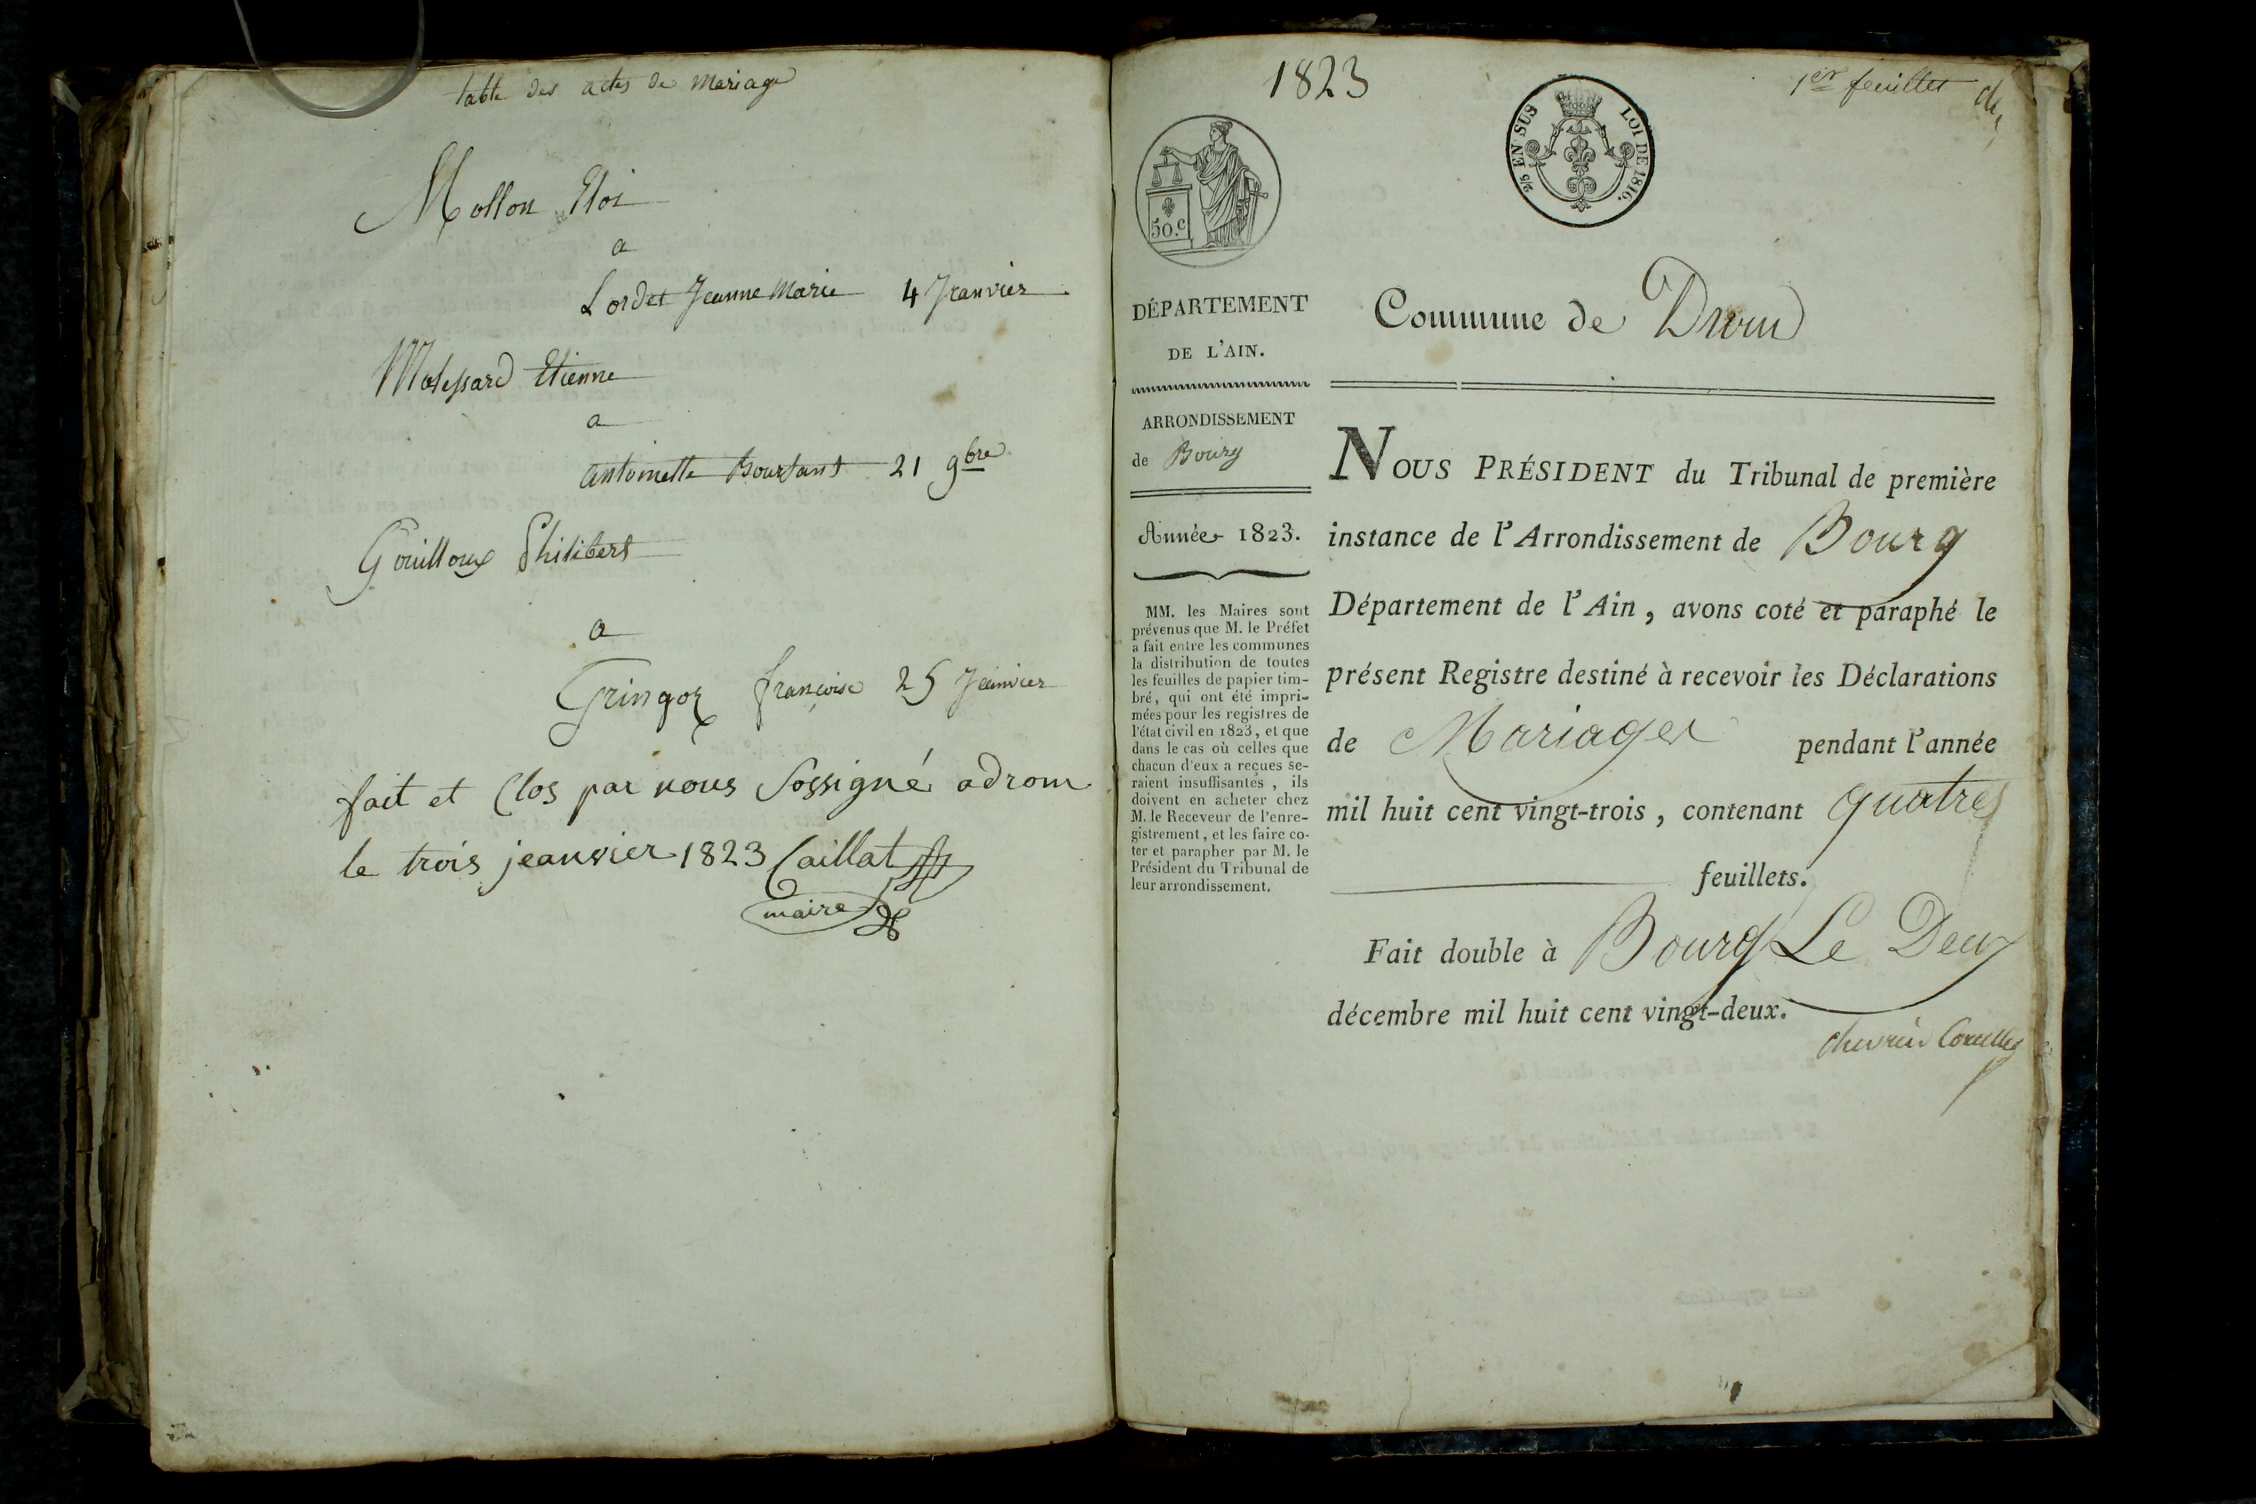 table des actes de mariage
Mollon Eloi
a
Lordet Jeanne Marie 4 Jeanvier
Etienne
a
antoinette 21 9bre
Gouilloux Philibert
a
Gringoz françoise 25 Jeanvier
fait et Clos par nous Sossigné adrom
le trois jeanvier 1823 Caillat
maire
1823
1er feuillet
50.c
2/5 EN SUS LOI DE 1816.
DÉPARTEMENT
DE L'AIN.
ARRONDISSEMENT
de Bourg
Année 1823.
MM. les Maires sont
prévenus que M. le Préfet
a fait entre les communes
la distribution de toutes
les feuilles de papier tim-
bré, qui ont été impri-
mées pour les registres de
l'état civil en 1823, et que
dans le cas où celles que
chacun d'eux a reçues se-
raient insuffisantes, ils
doivent en acheter chez
M. le Receveur de l'enre-
gistrement, et les faire co-
ter et parapher par M. le
Président du Tribunal de
leur arrondissement.
Commune de Drom
NOUS PRÉSIDENT du Tribunal de première
instance de l'Arrondissement de Bourg
Département de l'Ain, avons coté et paraphé le
présent Registre destiné à recevoir les Déclarations
de Mariages pendant l'année
mil huit cent vingt-trois, contenant quatre
feuillets.
Fait double à Bourg Le Deux
décembre mil huit cent vingt-deux.